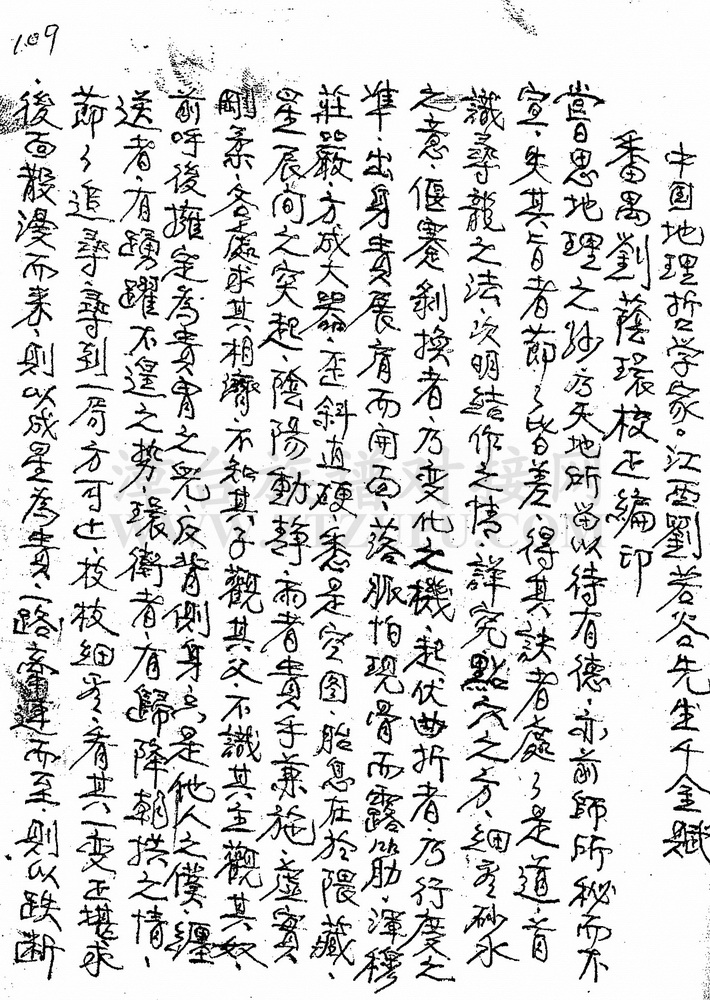 109
中国地理哲学家。江西劉若谷先生千金賦
番禺劉蔭環校正編印
嘗思地理之妙、乃天地所留以待有德、亦前師所秘而不
宣、失其旨者、節々皆差、得其訣者、處々是道、首
識尋龍之法、次明結作之情、詳究點穴之方、細察砂水
之意、偃蹇剝換者、乃变化之機、起伏曲折者、乃行度之
準、出身貴展肩而開面、落脈怕現骨而露筋、渾穆
莊嚴、方成大器、歪斜直硬、悉是空图、胎息在於隈藏、
星辰间之突起、陰陽動靜、兩者貴乎兼施、虛實
剛柔、各處求其相濟、不知其子觀其父、不識其主觀其奴、
前呼後擁、定為貴胄之兒、反背側身、只是他人之僕、纏
送者、有踴躍不遑之勢、環衛者、有歸降朝拱之情、
節々追尋、尋到一局方可止、枝枝細察、看其一变正堪求
、後面散漫而來、則以成星為貴、一路牽連而至、則以跌断
淳台族譜对接网
WWW.XIZUPU.COM